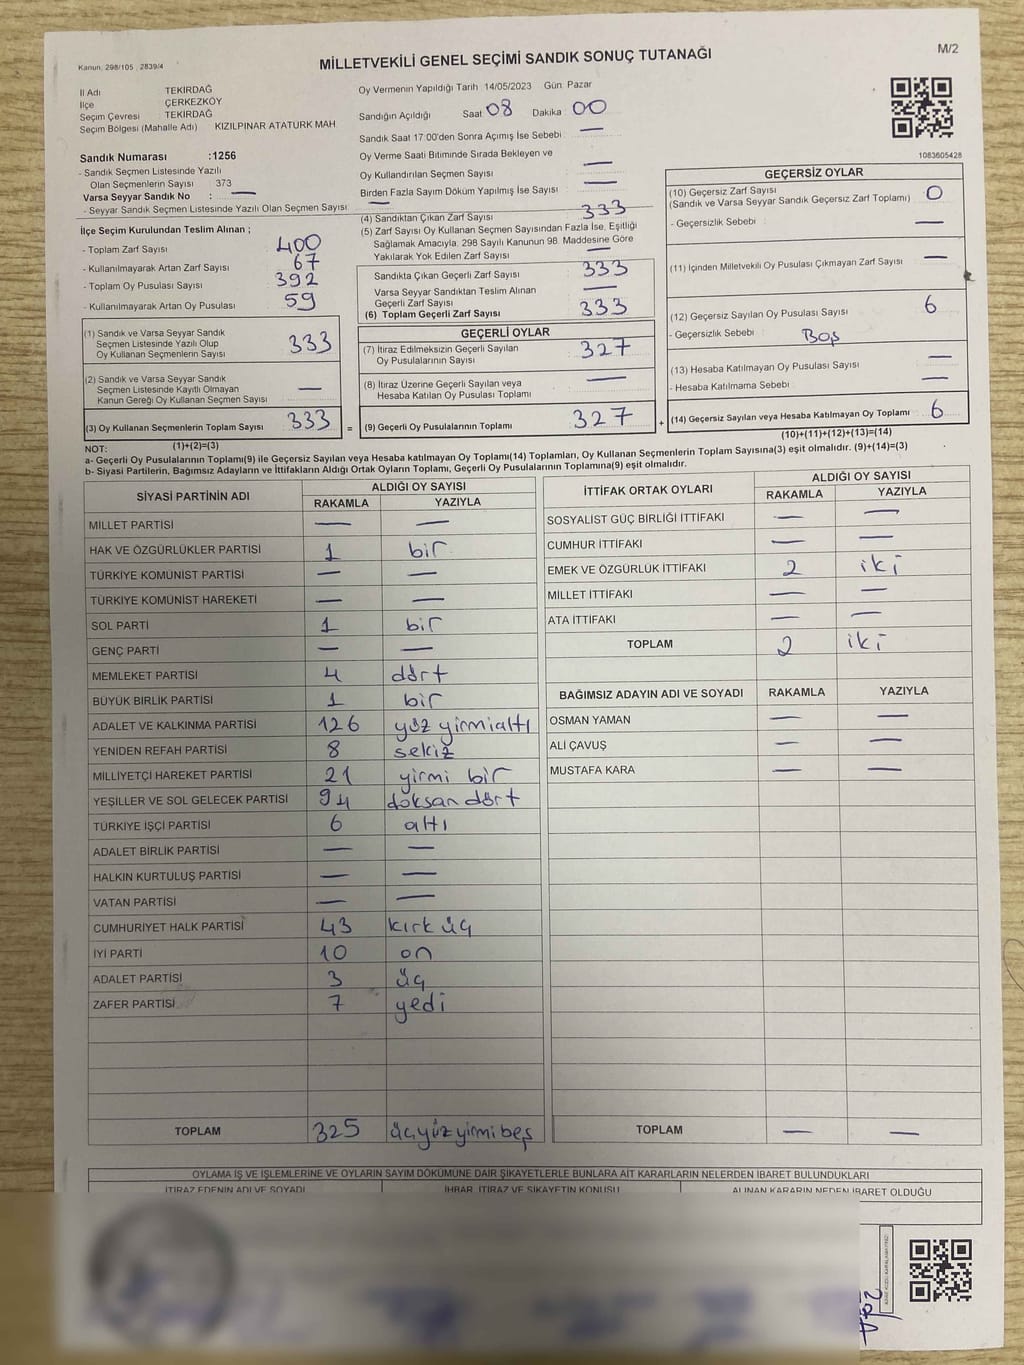 M/2
Kanun, 298/105 , 2839/4
MİLLETVEKİLİ GENEL SEÇİMİ SANDIK SONUÇ TUTANAĞI
İl Adı TEKİRDAĞ
İlçe ÇERKEZKÖY
Seçim Çevresi TEKİRDAĞ
Seçim Bölgesi (Mahalle Adı) KIZILPINAR ATATÜRK MAH.
Sandık Numarası :1256
- Sandık Seçmen Listesinde Yazılı
Olan Seçmenlerin Sayısı 373
Varsa Seyyar Sandık No : —
- Seyyar Sandık Seçmen Listesinde Yazılı Olan Seçmen Sayısı —
İlçe Seçim Kurulundan Teslim Alınan ;
- Toplam Zarf Sayısı 400
- Kullanılmayarak Artan Zarf Sayısı 67
- Toplam Oy Pusulası Sayısı 392
- Kullanılmayarak Artan Oy Pusulası 59
(1) Sandık ve Varsa Seyyar Sandık
Seçmen Listesinde Yazılı Olup
Oy Kullanan Seçmenlerin Sayısı 333
(2) Sandık ve Varsa Seyyar Sandık
Seçmen Listesinde Kayıtlı Olmayan
Kanun Gereği Oy Kullanan Seçmen Sayısı —
(3) Oy Kullanan Seçmenlerin Toplam Sayısı 333 =
(1)+(2)=(3)
Oy Vermenin Yapıldığı Tarih 14/05/2023 Gün Pazar
Sandığın Açıldığı Saat 08 Dakika 00
Sandık Saat 17:00'den Sonra Açımış İse Sebebi —
Oy Verme Saati Bitiminde Sırada Bekleyen ve
Oy Kullandırılan Seçmen Sayısı —
Birden Fazla Sayım Döküm Yapılmış İse Sayısı —
(4) Sandıktan Çıkan Zarf Sayısı 333
(5) Zarf Sayısı Oy Kullanan Seçmen Sayısından Fazla İse, Eşitliği
Sağlamak Amacıyla, 298 Sayılı Kanunun 98. Maddesine Göre
Yakılarak Yok Edilen Zarf Sayısı —
Sandıkta Çıkan Geçerli Zarf Sayısı 333
Varsa Seyyar Sandıktan Teslim Alınan
Geçerli Zarf Sayısı —
(6) Toplam Geçerli Zarf Sayısı 333
GEÇERLİ OYLAR
(7) İtiraz Edilmeksizin Geçerli Sayılan
Oy Pusulalarının Sayısı 327
(8) İtiraz Üzerine Geçerli Sayılan veya
Hesaba Katılan Oy Pusulaları Toplamı —
(9) Geçerli Oy Pusulalarının Toplamı 327 +
1083605428
GEÇERSİZ OYLAR
(10) Geçersiz Zarf Sayısı
(Sandık ve Varsa Seyyar Sandık Geçersiz Zarf Toplamı) 0
- Geçersizlik Sebebi : —
(11) İçinden Milletvekili Oy Pusulası Çıkmayan Zarf Sayısı —
(12) Geçersiz Sayılan Oy Pusulası Sayısı 6
- Geçersizlik Sebebi : Boş
(13) Hesaba Katılmayan Oy Pusulası Sayısı —
- Hesaba Katılmama Sebebi : —
(14) Geçersiz Sayılan veya Hesaba Katılmayan Oy Toplamı 6
(10)+(11)+(12)+(13)=(14)
NOT:
a- Geçerli Oy Pusulalarının Toplamı(9) ile Geçersiz Sayılan veya Hesaba katılmayan Oy Toplamı(14) Toplamları, Oy Kullanan Seçmenlerin Toplam Sayısına(3) eşit olmalıdır. (9)+(14)=(3)
b- Siyasi Partilerin, Bağımsız Adayların ve İttifakların Aldığı Ortak Oyların Toplamı, Geçerli Oy Pusulalarının Toplamına(9) eşit olmalıdır.
SİYASİ PARTİNİN ADI ALDIĞI OY SAYISI
RAKAMLA YAZIYLA
MİLLET PARTİSİ — —
HAK VE ÖZGÜRLÜKLER PARTİSİ 1 bir
TÜRKİYE KOMÜNİST PARTİSİ — —
TÜRKİYE KOMÜNİST HAREKETİ — —
SOL PARTİ 1 bir
GENÇ PARTİ — —
MEMLEKET PARTİSİ 4 dört
BÜYÜK BİRLİK PARTİSİ 1 bir
ADALET VE KALKINMA PARTİSİ 126 yüz yirmialtı
YENİDEN REFAH PARTİSİ 8 sekiz
MİLLİYETÇİ HAREKET PARTİSİ 21 yirmi bir
YEŞİLLER VE SOL GELECEK PARTİSİ 94 doksan dört
TÜRKİYE İŞÇİ PARTİSİ 6 altı
ADALET BİRLİK PARTİSİ — —
HALKIN KURTULUŞ PARTİSİ — —
VATAN PARTİSİ — —
CUMHURİYET HALK PARTİSİ 43 kırk üç
İYİ PARTİ 10 on
ADALET PARTİSİ 3 üç
ZAFER PARTİSİ 7 yedi
TOPLAM 325 üçyüzyirmibeş
İTTİFAK ORTAK OYLARI ALDIĞI OY SAYISI
RAKAMLA YAZIYLA
SOSYALİST GÜÇ BİRLİĞİ İTTİFAKI — —
CUMHUR İTTİFAKI — —
EMEK VE ÖZGÜRLÜK İTTİFAKI 2 iki
MİLLET İTTİFAKI — —
ATA İTTİFAKI — —
TOPLAM 2 iki
BAĞIMSIZ ADAYIN ADI VE SOYADI RAKAMLA YAZIYLA
OSMAN YAMAN — —
ALİ ÇAVUŞ — —
MUSTAFA KARA — —
TOPLAM — —
OYLAMA İŞ VE İŞLEMLERİNE VE OYLARIN SAYIM DÖKÜMÜNE DAİR ŞİKAYETLERLE BUNLARA AİT KARARLARIN NELERDEN İBARET BULUNDUKLARI
İTİRAZ EDENİN ADI VE SOYADI İHBAR, İTİRAZ VE ŞİKAYETİN KONUSU ALINAN KARARIN NEDEN İBARET OLDUĞU